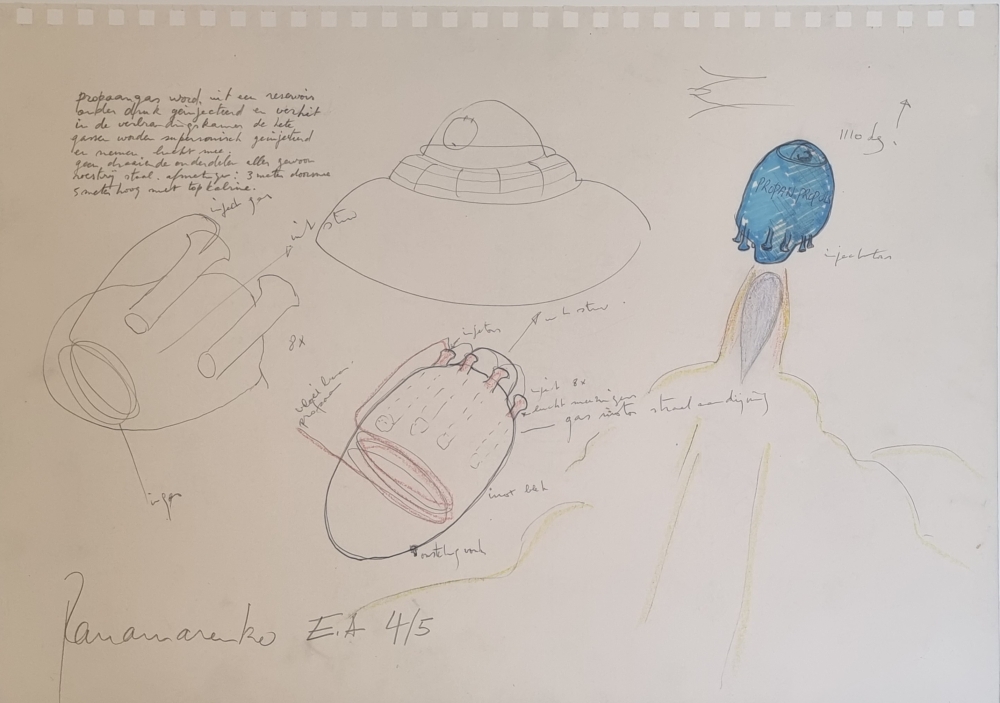 propaangas word uit een reservoir
onder druk geinjecteerd en verhit
in de verbrandingskamer de hete
gassen worden supersonisch geinjecteerd
en nemen lucht mee
geen draaiende onderdelen alles gewoon
roestvrij staal. afmetingen: 3 meter doorsnee
5 meter hoog met topkabine.
inject gas
8x
1110 kg.
PROPAN PROPUL
injectors
injectors
inject 8x
lucht
gas straalaandrijving
vloeibaar
propaan
inox
Panamarenko E.A 4/5